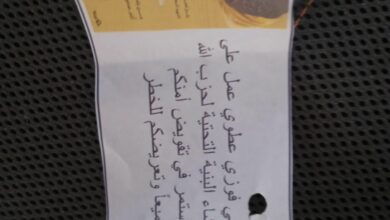 ي فوزي عطوي عمل على
اء البنية التحتية لحزب الله
ستمر في تقويض أمنكم
ميعاً وتعريضكم للخطر